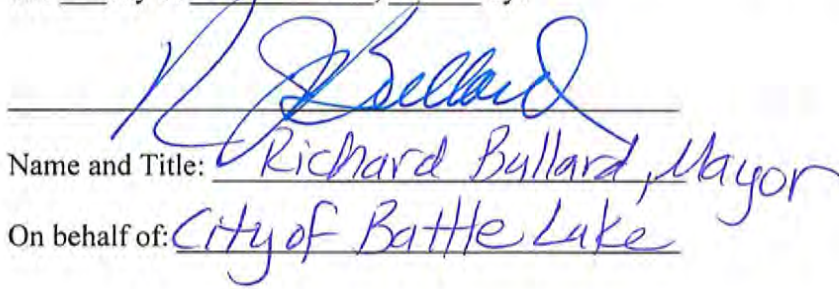 R J Bullard
Name and Title: Richard Bullard, Mayor
On behalf of: City of Battle Lake